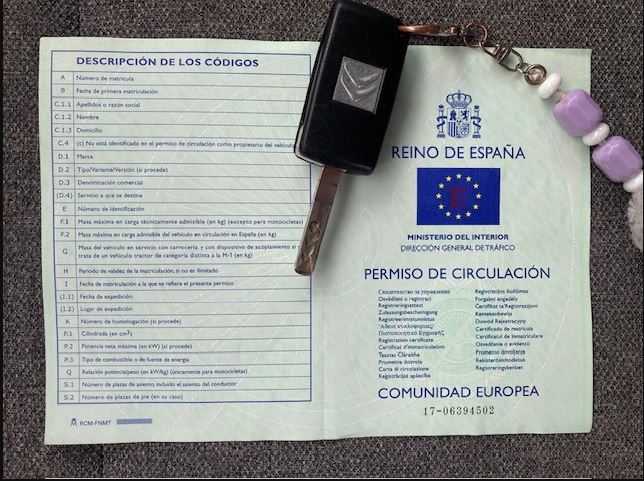 DESCRIPCIÓN DE LOS CÓDIGOS
A Número de matrícula
B Fecha de primera matriculación
C.1.1 Apellidos o razón social
C.1.2 Nombre
C.1.3 Domicilio
C.4 (c) No está identificado en el permiso de circulación como propietario del vehículo
D.1 Marca
D.2 Tipo/Variante/Versión (si procede)
D.3 Denominación comercial
(D.4) Servicio a que se destina
E Número de identificación
F.1 Masa máxima en carga técnicamente admisible (en kg) (excepto para motocicletas)
F.2 Masa máxima en carga admisible del vehículo en circulación en España (en kg)
G Masa del vehículo en servicio con carrocería, y con dispositivo de acoplamiento si
trata de un vehículo tractor de categoría distinta a la M-1 (en kg)
H Período de validez de la matriculación, si no es ilimitado
I Fecha de matriculación a la que se refiere el presente permiso
(I.1) Fecha de expedición
(I.2) Lugar de expedición
K Número de homologación (si procede)
P.1 Cilindrada (en cm³)
P.2 Potencia neta máxima (en kW) (si procede)
P.3 Tipo de combustible o de fuente de energía
Q Relación potencia/peso (en kW/kg) (únicamente para motocicletas)
S.1 Número de plazas de asiento, incluido el asiento del conductor
S.2 Número de plazas de pie (en su caso)
RCM-FNMT
REINO DE ESPAÑA
E
MINISTERIO DEL INTERIOR
DIRECCIÓN GENERAL DE TRÁFICO
PERMISO DE CIRCULACIÓN
Свидетелство за управление
Osvědčení o registraci
Registreringsattest
Zulassungsbescheinigung
Registreerimistunnistus
Άδεια κυκλοφορίας/
Πιστοποιητικό Εγγραφής
Registration certificate
Certificat d'immatriculation
Teastas Cláraithe
Prometna dozvola
Carta di circolazione
Reģistrācijas apliecība
Registracijos liudijimas
Forgalmi engedély
Ċertifikat ta' Reġistrazzjoni
Kentekenbewijs
Dowód Rejestracyjny
Certificado de matrícula
Certificatul de înmatriculare
Osvedčenie o evidencii
Prometno dovoljenje
Rekisteröintitodistus
Registreringsbeviset
COMUNIDAD EUROPEA
17-06394502